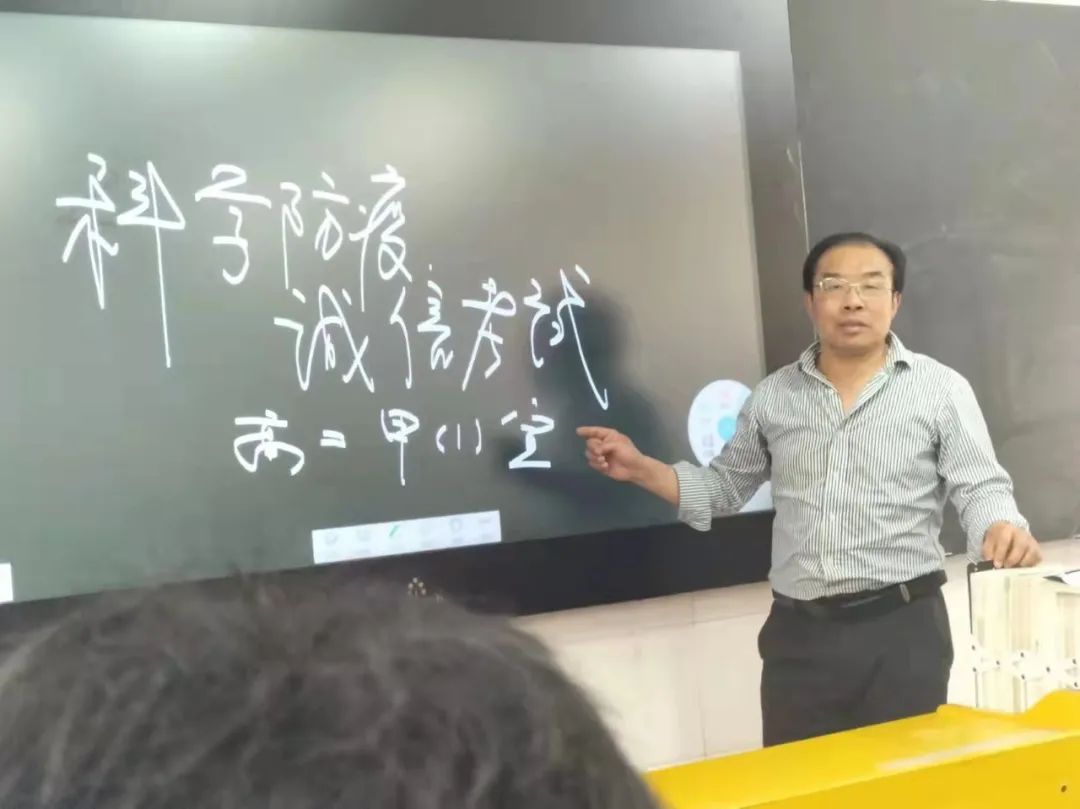 科学防疫
诚信考试
高二甲(1)宣